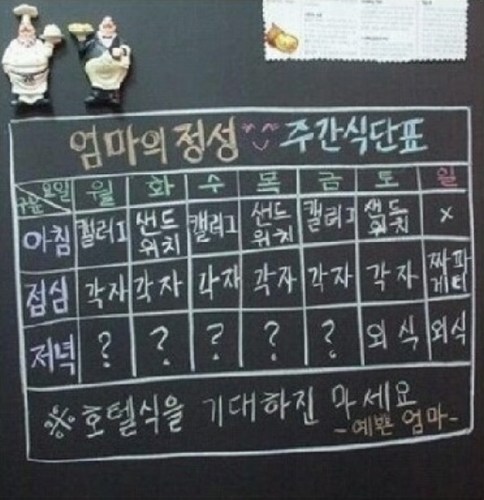 엄마의 정성 ^^ 주간식단표
구분 요일 월 화 수 목 금 토 일
아침 컬러그 샌드위치 캘러그 샌드위치 캘러그 샌드위치 x
점심 각자 각자 각자 각자 각자 각자 짜파게티
저녁 ? ? ? ? ? 외식 외식
※ 호텔식을 기대하진 마세요
-예쁜 엄마-